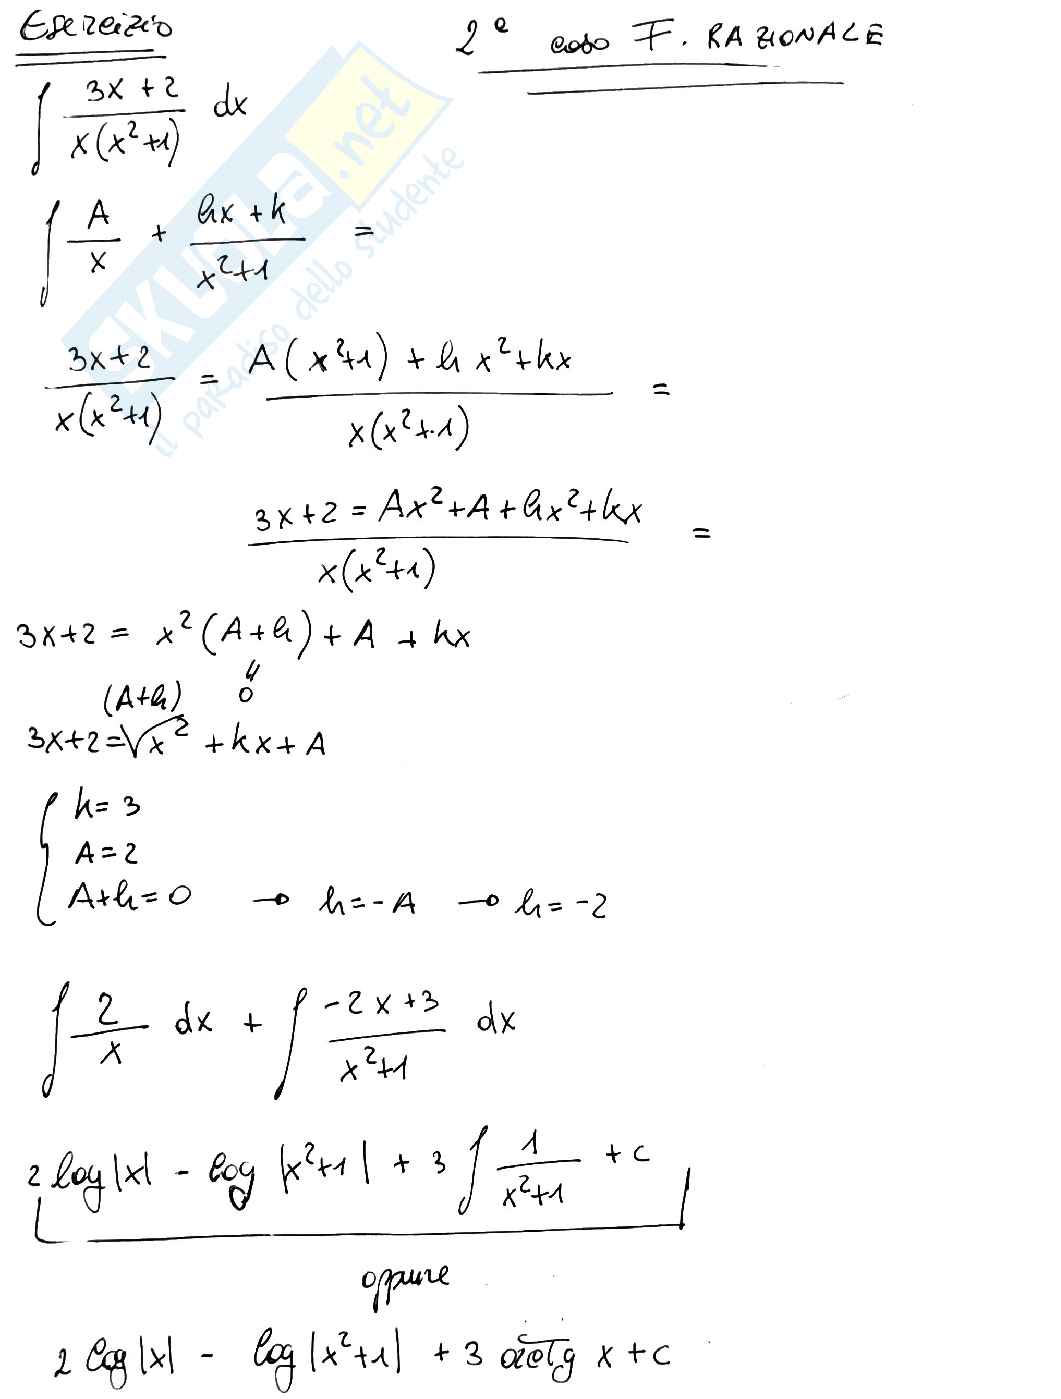 Esercizio
2° caso F. RAZIONALE
∫ (3x + 2)/(x(x²+1)) dx
∫ A/x + (hx + k)/(x²+1) =
(3x+2)/(x(x²+1)) = (A(x²+1) + hx²+kx)/(x(x²+1)) =
(3x+2 = Ax²+A+hx²+kx)/(x(x²+1)) =
3x+2 = x²(A+h) + A + kx
0
(A+h)
3x+2 = x² + kx + A
{ k = 3
A = 2
A+h = 0 → h = -A → h = -2
∫ 2/x dx + ∫ (-2x+3)/(x²+1) dx
2 log|x| - log |x²+1| + 3 ∫ 1/(x²+1) + c
oppure
2 log|x| - log|x²+1| + 3 arctg x + c
SKUOLA.net
il paradiso dello studente